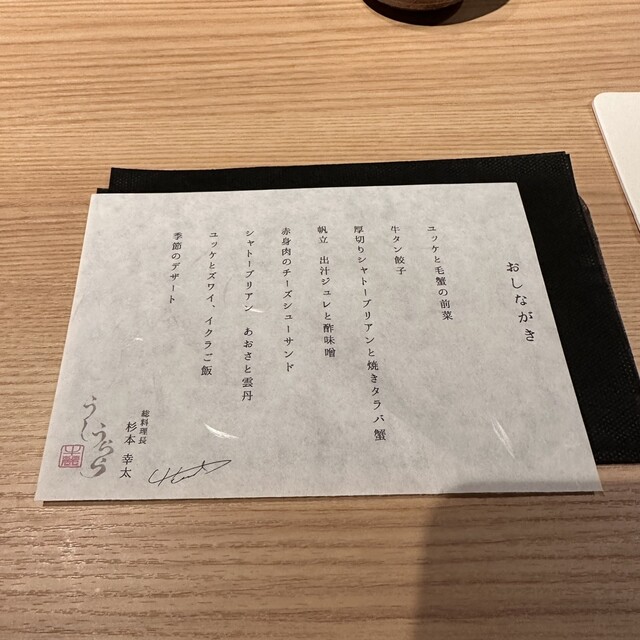 おしながき
ユッケと毛蟹の前菜
牛タン餃子
厚切りシャトーブリアンと焼きタラバ蟹
帆立　出汁ジュレと酢味噌
赤身肉のチーズシューサンド
シャトーブリアン　あおさと雲丹
ユッケとズワイ、イクラご飯
季節のデザート
総料理長
杉本 幸太